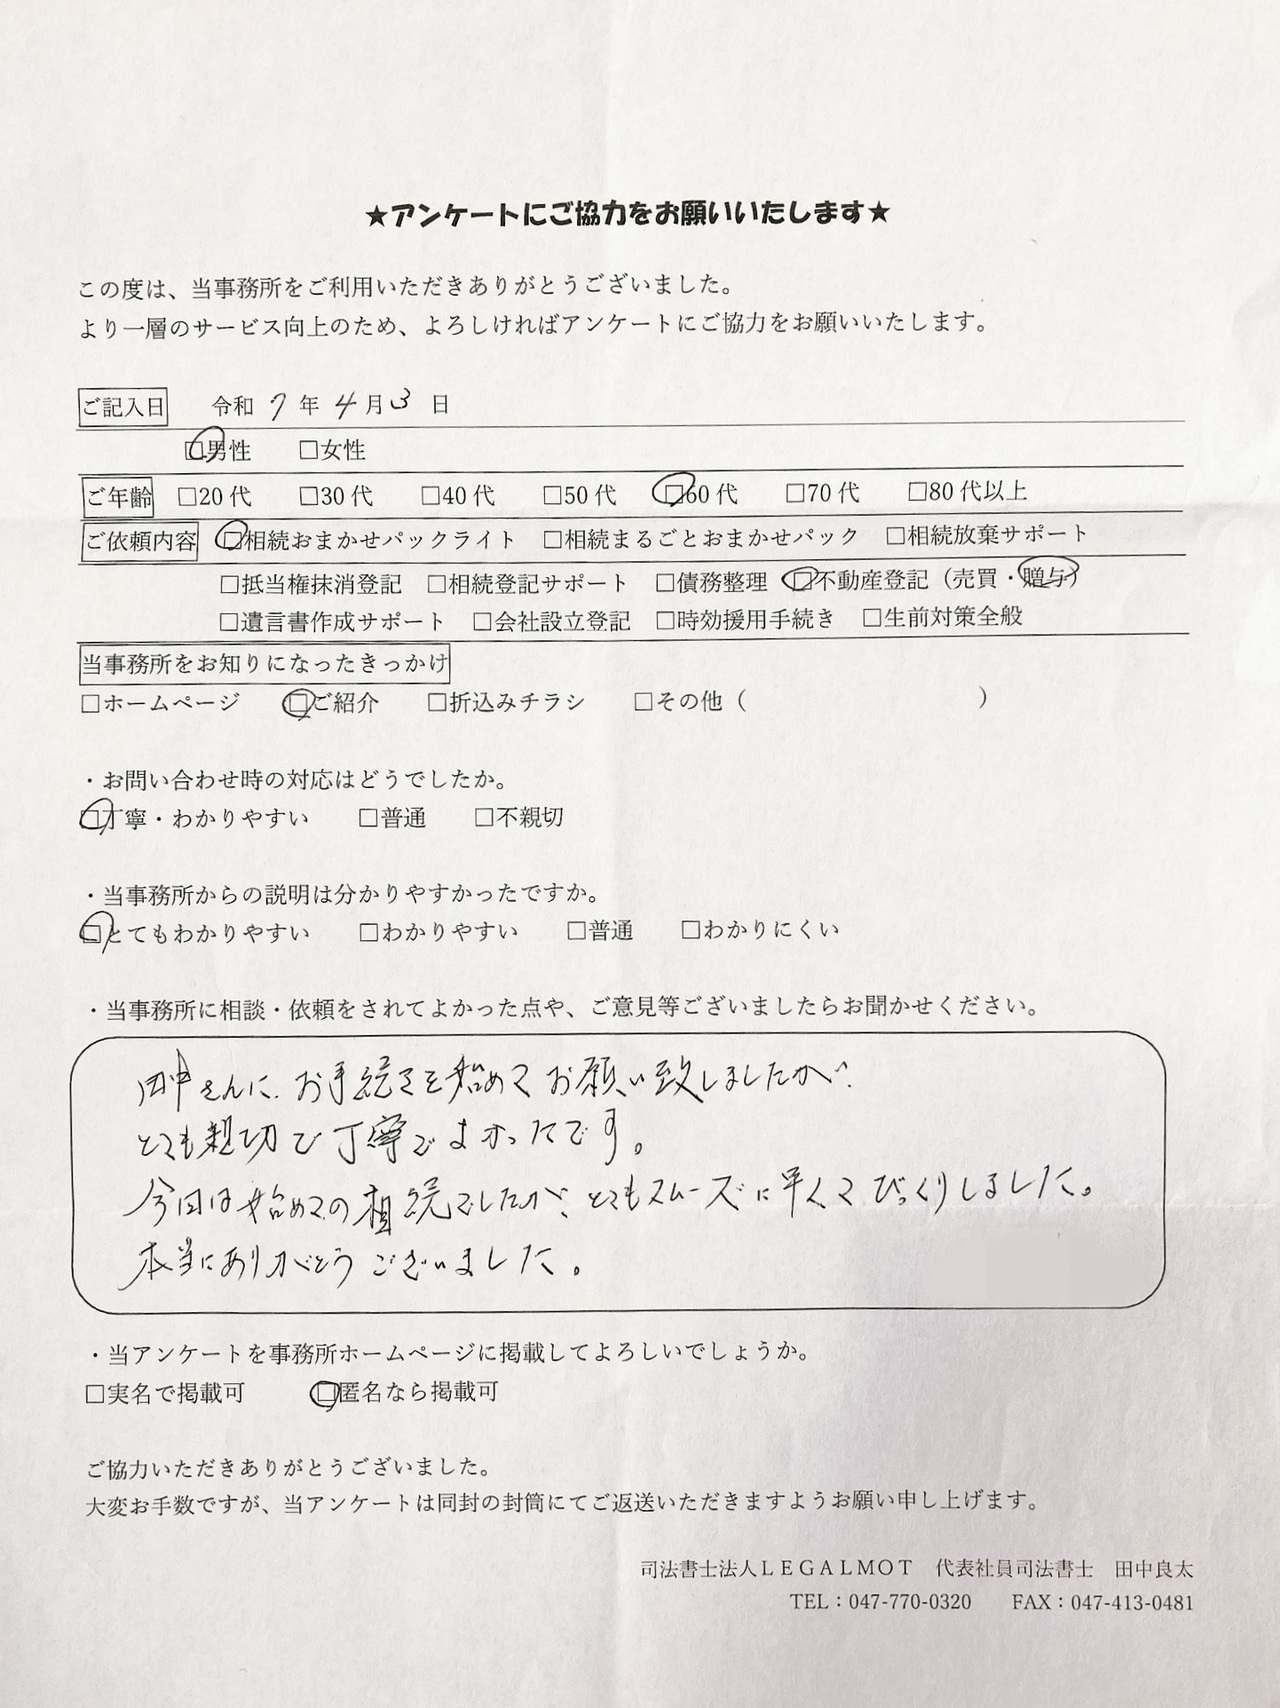 ★アンケートにご協力をお願いいたします★
この度は、当事務所をご利用いただきありがとうございました。
より一層のサービス向上のため、よろしければアンケートにご協力をお願いいたします。
ご記入日 令和 7 年 4 月 3 日
□男性 □女性
ご年齢 □20代 □30代 □40代 □50代 □60代 □70代 □80代以上
ご依頼内容 □相続おまかせパックライト □相続まるごとおまかせパック □相続放棄サポート
□抵当権抹消登記 □相続登記サポート □債務整理 □不動産登記（売買・贈与）
□遺言書作成サポート □会社設立登記 □時効援用手続き □生前対策全般
当事務所をお知りになったきっかけ
□ホームページ □ご紹介 □折込みチラシ □その他（ ）
・お問い合わせ時の対応はどうでしたか。
□丁寧・わかりやすい □普通 □不親切
・当事務所からの説明は分かりやすかったですか。
□とてもわかりやすい □わかりやすい □普通 □わかりにくい
・当事務所に相談・依頼をされてよかった点や、ご意見等ございましたらお聞かせください。
田中さんに、お手続きを始めてお願い致しましたが、
とても親切で丁寧でよかったです。
今回は始めての相続でしたが、とてもスムーズに早くてびっくりしました。
本当にありがとうございました。
・当アンケートを事務所ホームページに掲載してよろしいでしょうか。
□実名で掲載可 □匿名なら掲載可
ご協力いただきありがとうございました。
大変お手数ですが、当アンケートは同封の封筒にてご返送いただきますようお願い申し上げます。
司法書士法人ＬＥＧＡＬＭＯＴ 代表社員司法書士 田中良太
TEL：047-770-0320 FAX：047-413-0481